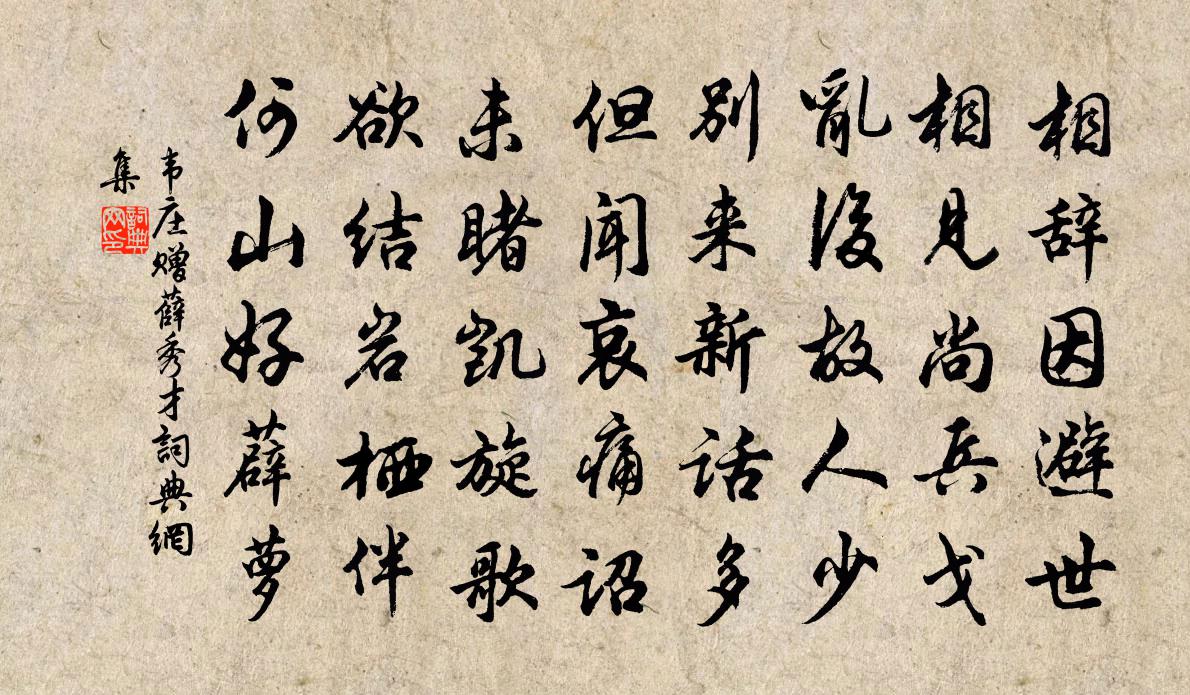 相辞因避世
相見尚兵戈
亂後故人少
别来新话多
但闻哀痛诏
未睹凯旋歌
欲结岩栖伴
何山好薜萝
韦庄赠薛秀才詞典網
集
詞典網印